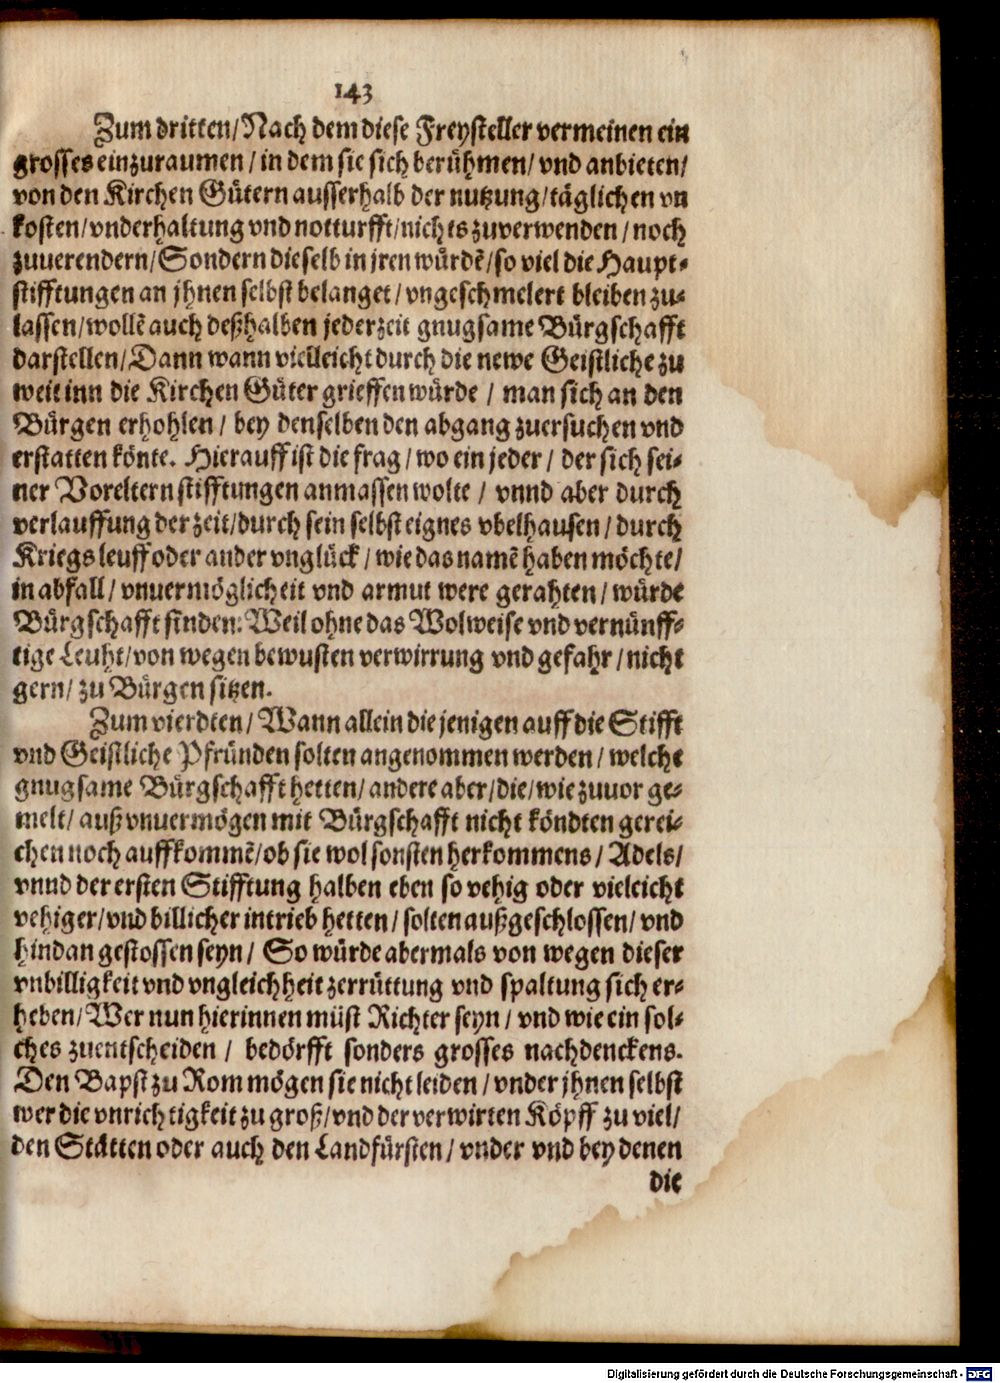 143
Zum dritten/Nach dem diese Freysteller vermeinen ein
grosses einzuraumen / in dem sie sich berühmen/ vnd anbieten/
von den Kirchen Gütern ausserhalb der nutzung/täglichen vn
kosten/vnderhaltung vnd notturfft/nichts zuverwenden / noch
zuuerendern/Sondern dieselb in jren würdẽ/so viel die Haupt-
stifftungen an jhnen selbst belanget / vngeschmelert bleiben zu-
lassen/wollẽ auch deßhalben jederzeit gnugsame Bürgschafft
darstellen/Dann wann vielleicht durch die newe Geistliche zu
weit inn die Kirchen Güter grieffen würde / man sich an den
Bürgen erhohlen / bey denselben den abgang zuersuchen vnd
erstatten könte. Hierauff ist die frag / wo ein jeder / der sich sei-
ner Voreltern stifftungen anmassen wolte / vnnd aber durch
verlauffung der zeit/durch sein selbst eignes vbelhausen / durch
Kriegs leuff oder ander vnglück / wie das namẽ haben möchte/
in abfall / vnuermöglicheit vnd armut were gerahten / würde
Bürgschafft finden: Weil ohne das Wolweise vnd vernünff-
tige Leuht/von wegen bewusten verwirrung vnd gefahr / nicht
gern/ zu Bürgen sitzen.
Zum vierdten / Wann allein die jenigen auff die Stifft
vnd Geistliche Pfründen solten angenommen werden / welche
gnugsame Bürgschafft hetten/ andere aber/die/ wie zuuor ge-
melt/ auß vnuermögen mit Bürgschafft nicht köndten gerei-
chen noch auffkommẽ/ob sie wol sonsten herkommens / Adels/
vnnd der ersten Stifftung halben eben so vehig oder vieleicht
vehiger/vnd billicher intrieb hetten / solten außgeschlossen/ vnd
hindan gestossen seyn / So würde abermals von wegen dieser
vnbilligkeit vnd vngleichheit zerrüttung vnd spaltung sich er-
heben/Wer nun hierinnen müst Richter seyn / vnd wie ein sol-
ches zuentscheiden / bedörfft sonders grosses nachdenckens.
Den Bapst zu Rom mögen sie nicht leiden / vnder jhnen selbst
wer die vnrichtigkeit zu groß/vnd der verwirten Köpff zu viel/
den Stätten oder auch den Landfürsten / vnder vnd bey denen
die
Digitalisierung gefördert durch die Deutsche Forschungsgemeinschaft - DFG